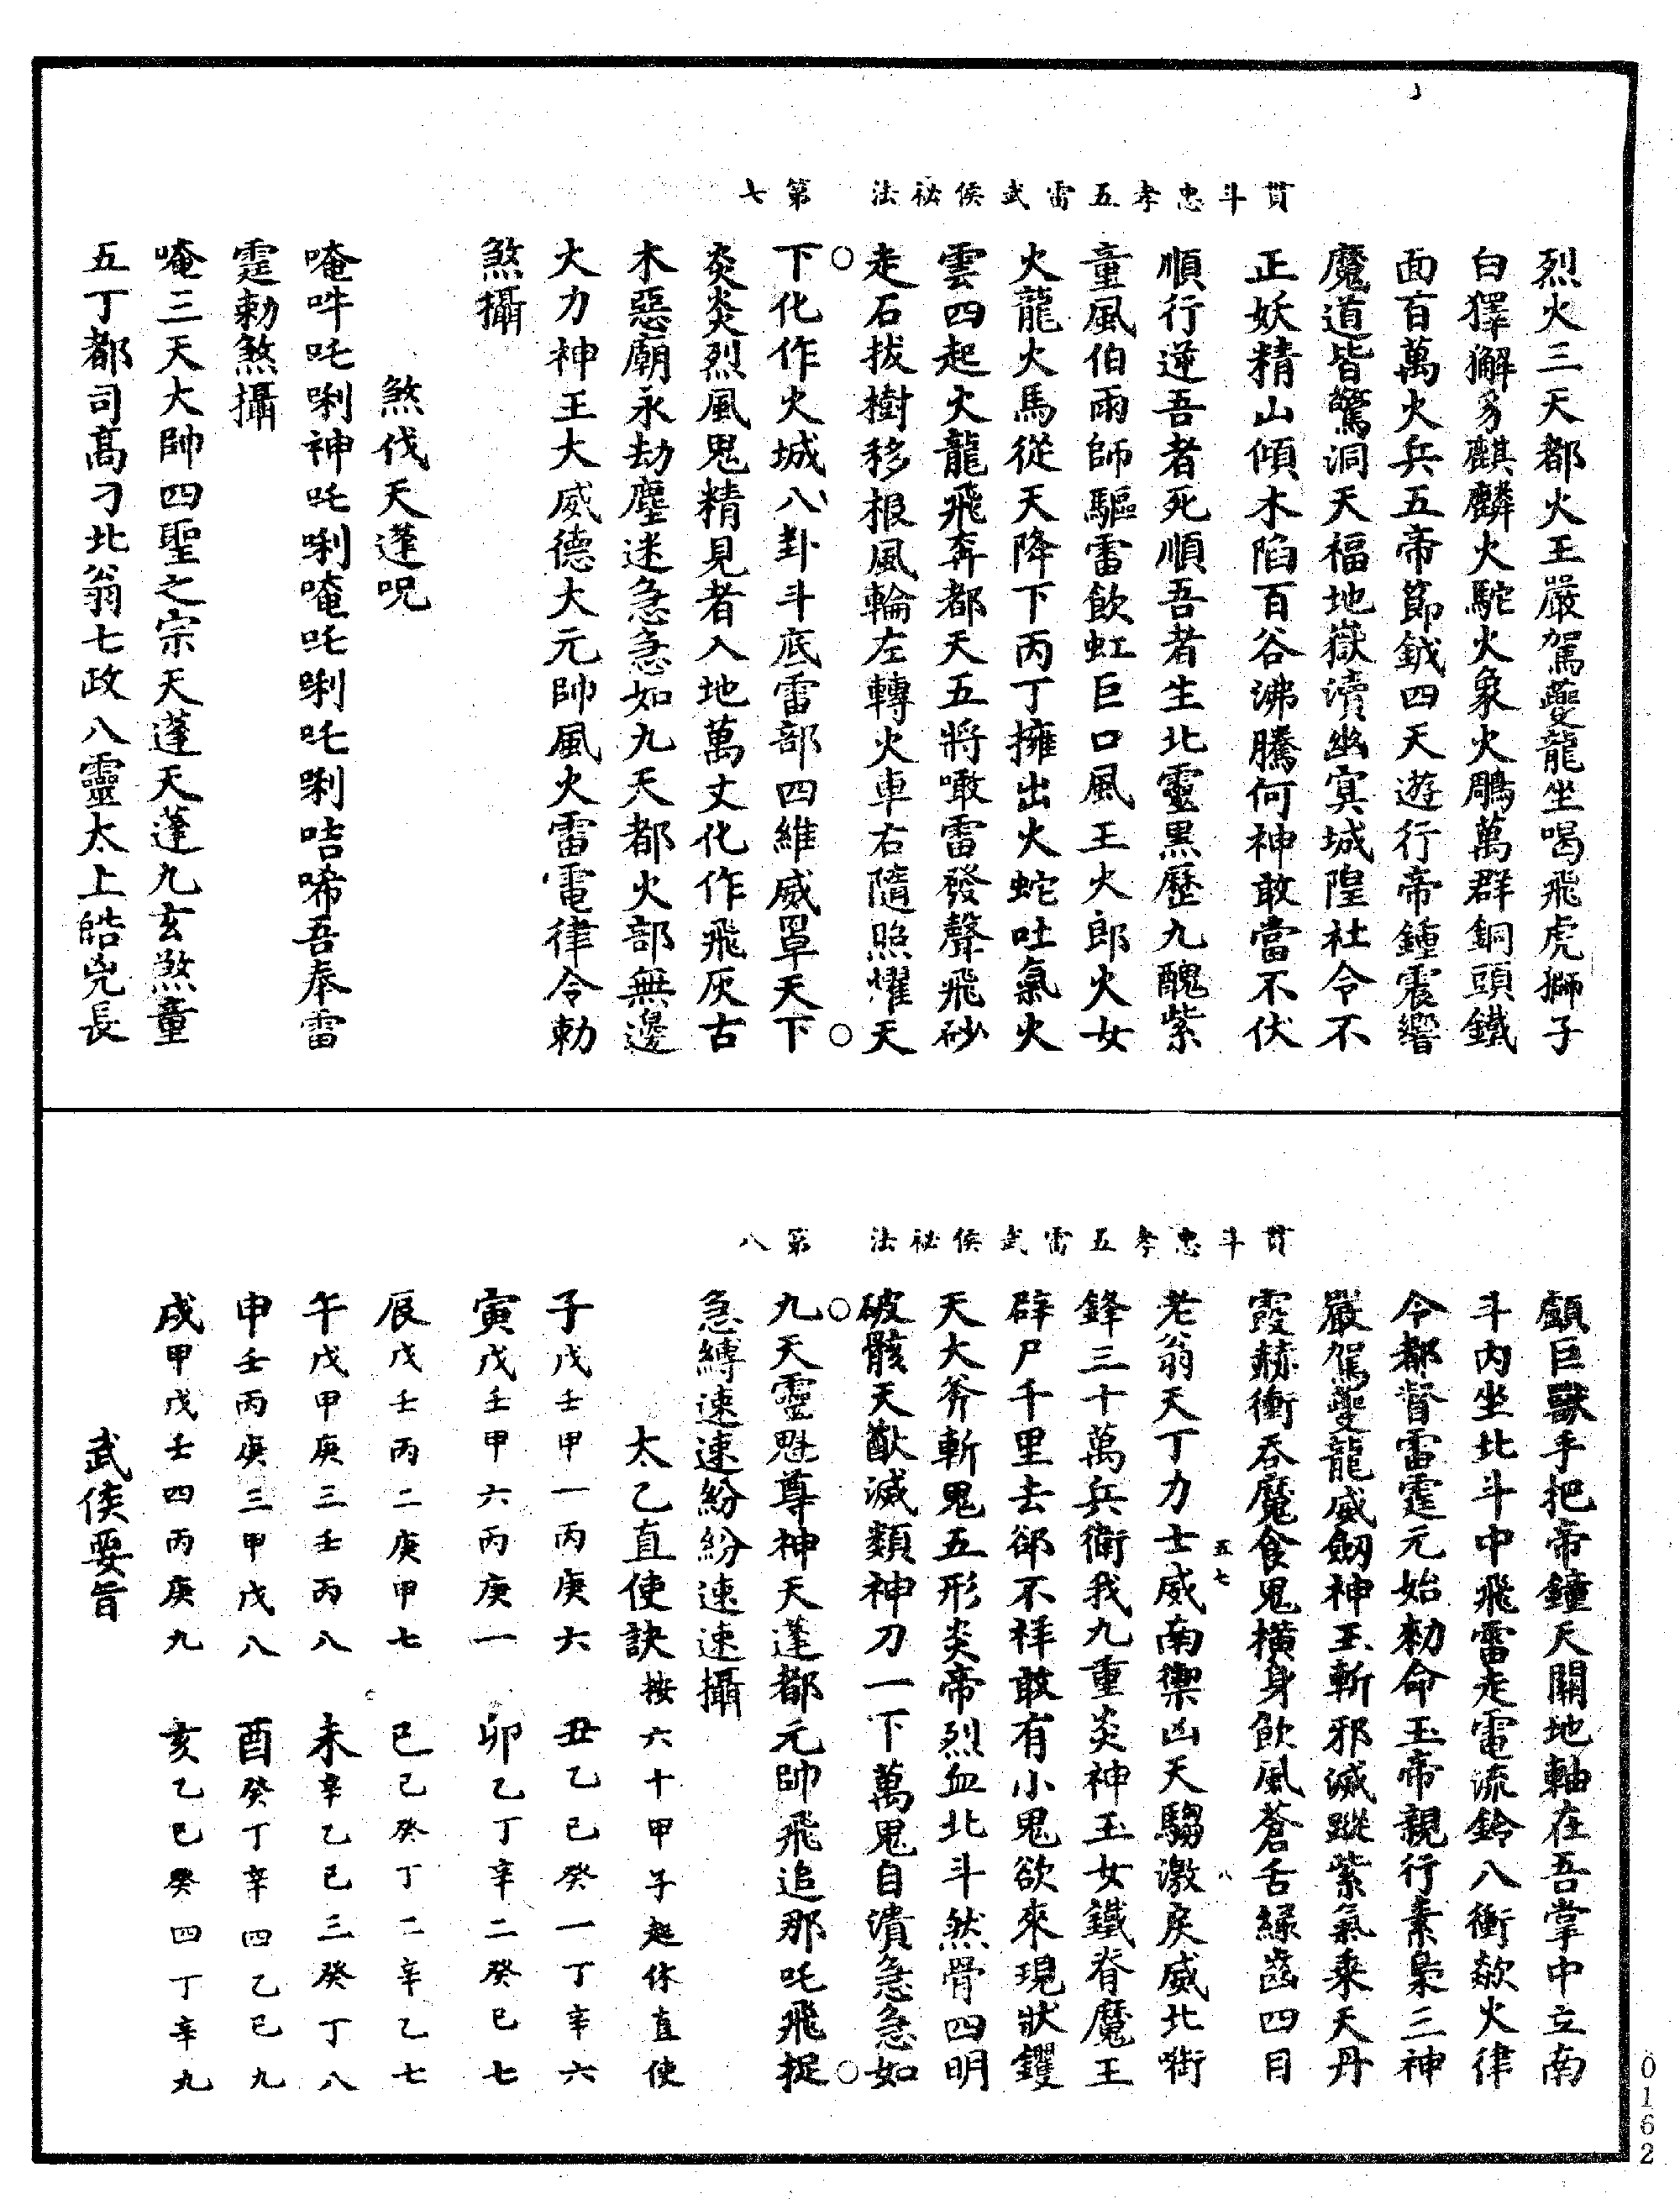 貫斗忠孝五雷武侯祕法　第七
烈火三天都火王嚴駕夔龍坐喝飛虎獅子
白獬豸麒麟火駝火象火鵰萬群銅頭鐵
面百萬火兵五帝節鉞四天遊行帝鍾震響
魔道皆驚洞天福地嶽瀆幽冥城隍社令不
正妖精山傾木陷百谷沸騰何神敢當不伏
順行逆吾者死順吾者生北靈黑歷九醜紫
童風伯雨師驅雷飲虹巨口風王火郎火女
火龍火馬從天降下丙丁擁出火蛇吐氣火
雲四起火龍飛奔都天五將噉雷發聲飛砂
走石拔樹移根風輪左轉火車右隨照耀天
下化作火城八卦斗底雷部四維威罩天下
炎炎烈風鬼精見者入地萬丈化作飛灰古
木惡廟永劫塵迷急急如九天都火部無邊
大力神王大威德大元帥風火雷電律令勅
煞攝
煞伐天蓬呪
唵吽吒唎神吒唎唵吒唎吒唎咭唏吾奉雷
霆勅煞攝
唵三天大帥四聖之宗天蓬天蓬九玄煞童
五丁都司高刁北翁七政八靈太上皓兇長
貫斗忠孝五雷武侯祕法　第八
顱巨獸手把帝鐘天關地軸在吾掌中立南
斗內坐北斗中飛雷走電流鈴八衝欻火律
令都督雷霆元始勅命玉帝親行素梟三神
嚴駕夔龍威劒神王斬邪滅蹤紫氣乘天丹
霞赫衝吞魔食鬼橫身飲風蒼舌綠齒四目
五七　八
老翁天丁力士威南禦凶天騶激戾威北啣
鋒三十萬兵衛我九重炎神玉女鐵脊魔王
辟尸千里去郤不祥敢有小鬼欲來現狀钁
天大斧斬鬼五形炎帝烈血北斗然骨四明
破骸天猷滅類神刀一下萬鬼自潰急急如
九天靈魁尊神天蓬都元帥飛追那吒飛捉
急縛速速紛紛速速攝
太乙直使訣按六十甲子起休直使
子戊壬甲一丙庚六　丑乙己癸一丁辛六
寅戊壬甲六丙庚一　卯乙丁辛二癸己七
辰戊壬丙二庚甲七　巳己癸丁二辛乙七
午戊甲庚三壬丙八　未辛乙己三癸丁八
申壬丙庚三甲戊八　酉癸丁辛四乙己九
戌甲戊壬四丙庚九　亥乙己癸四丁辛九
武侯要旨
0162